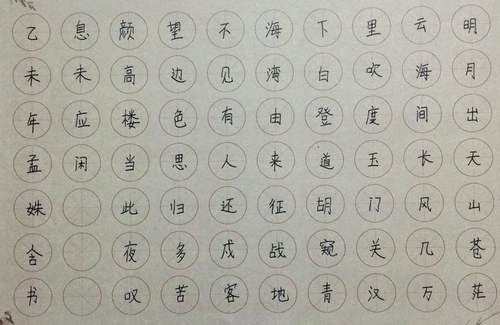 明月出天山苍茫
云海间长风几万
里吹度玉门关汉
下白登道胡窥青
海湾由来征战地
不见有人还戍客
望边色思归多苦
颜高楼当此夜叹
息未应闲
乙未年孟姝舍书